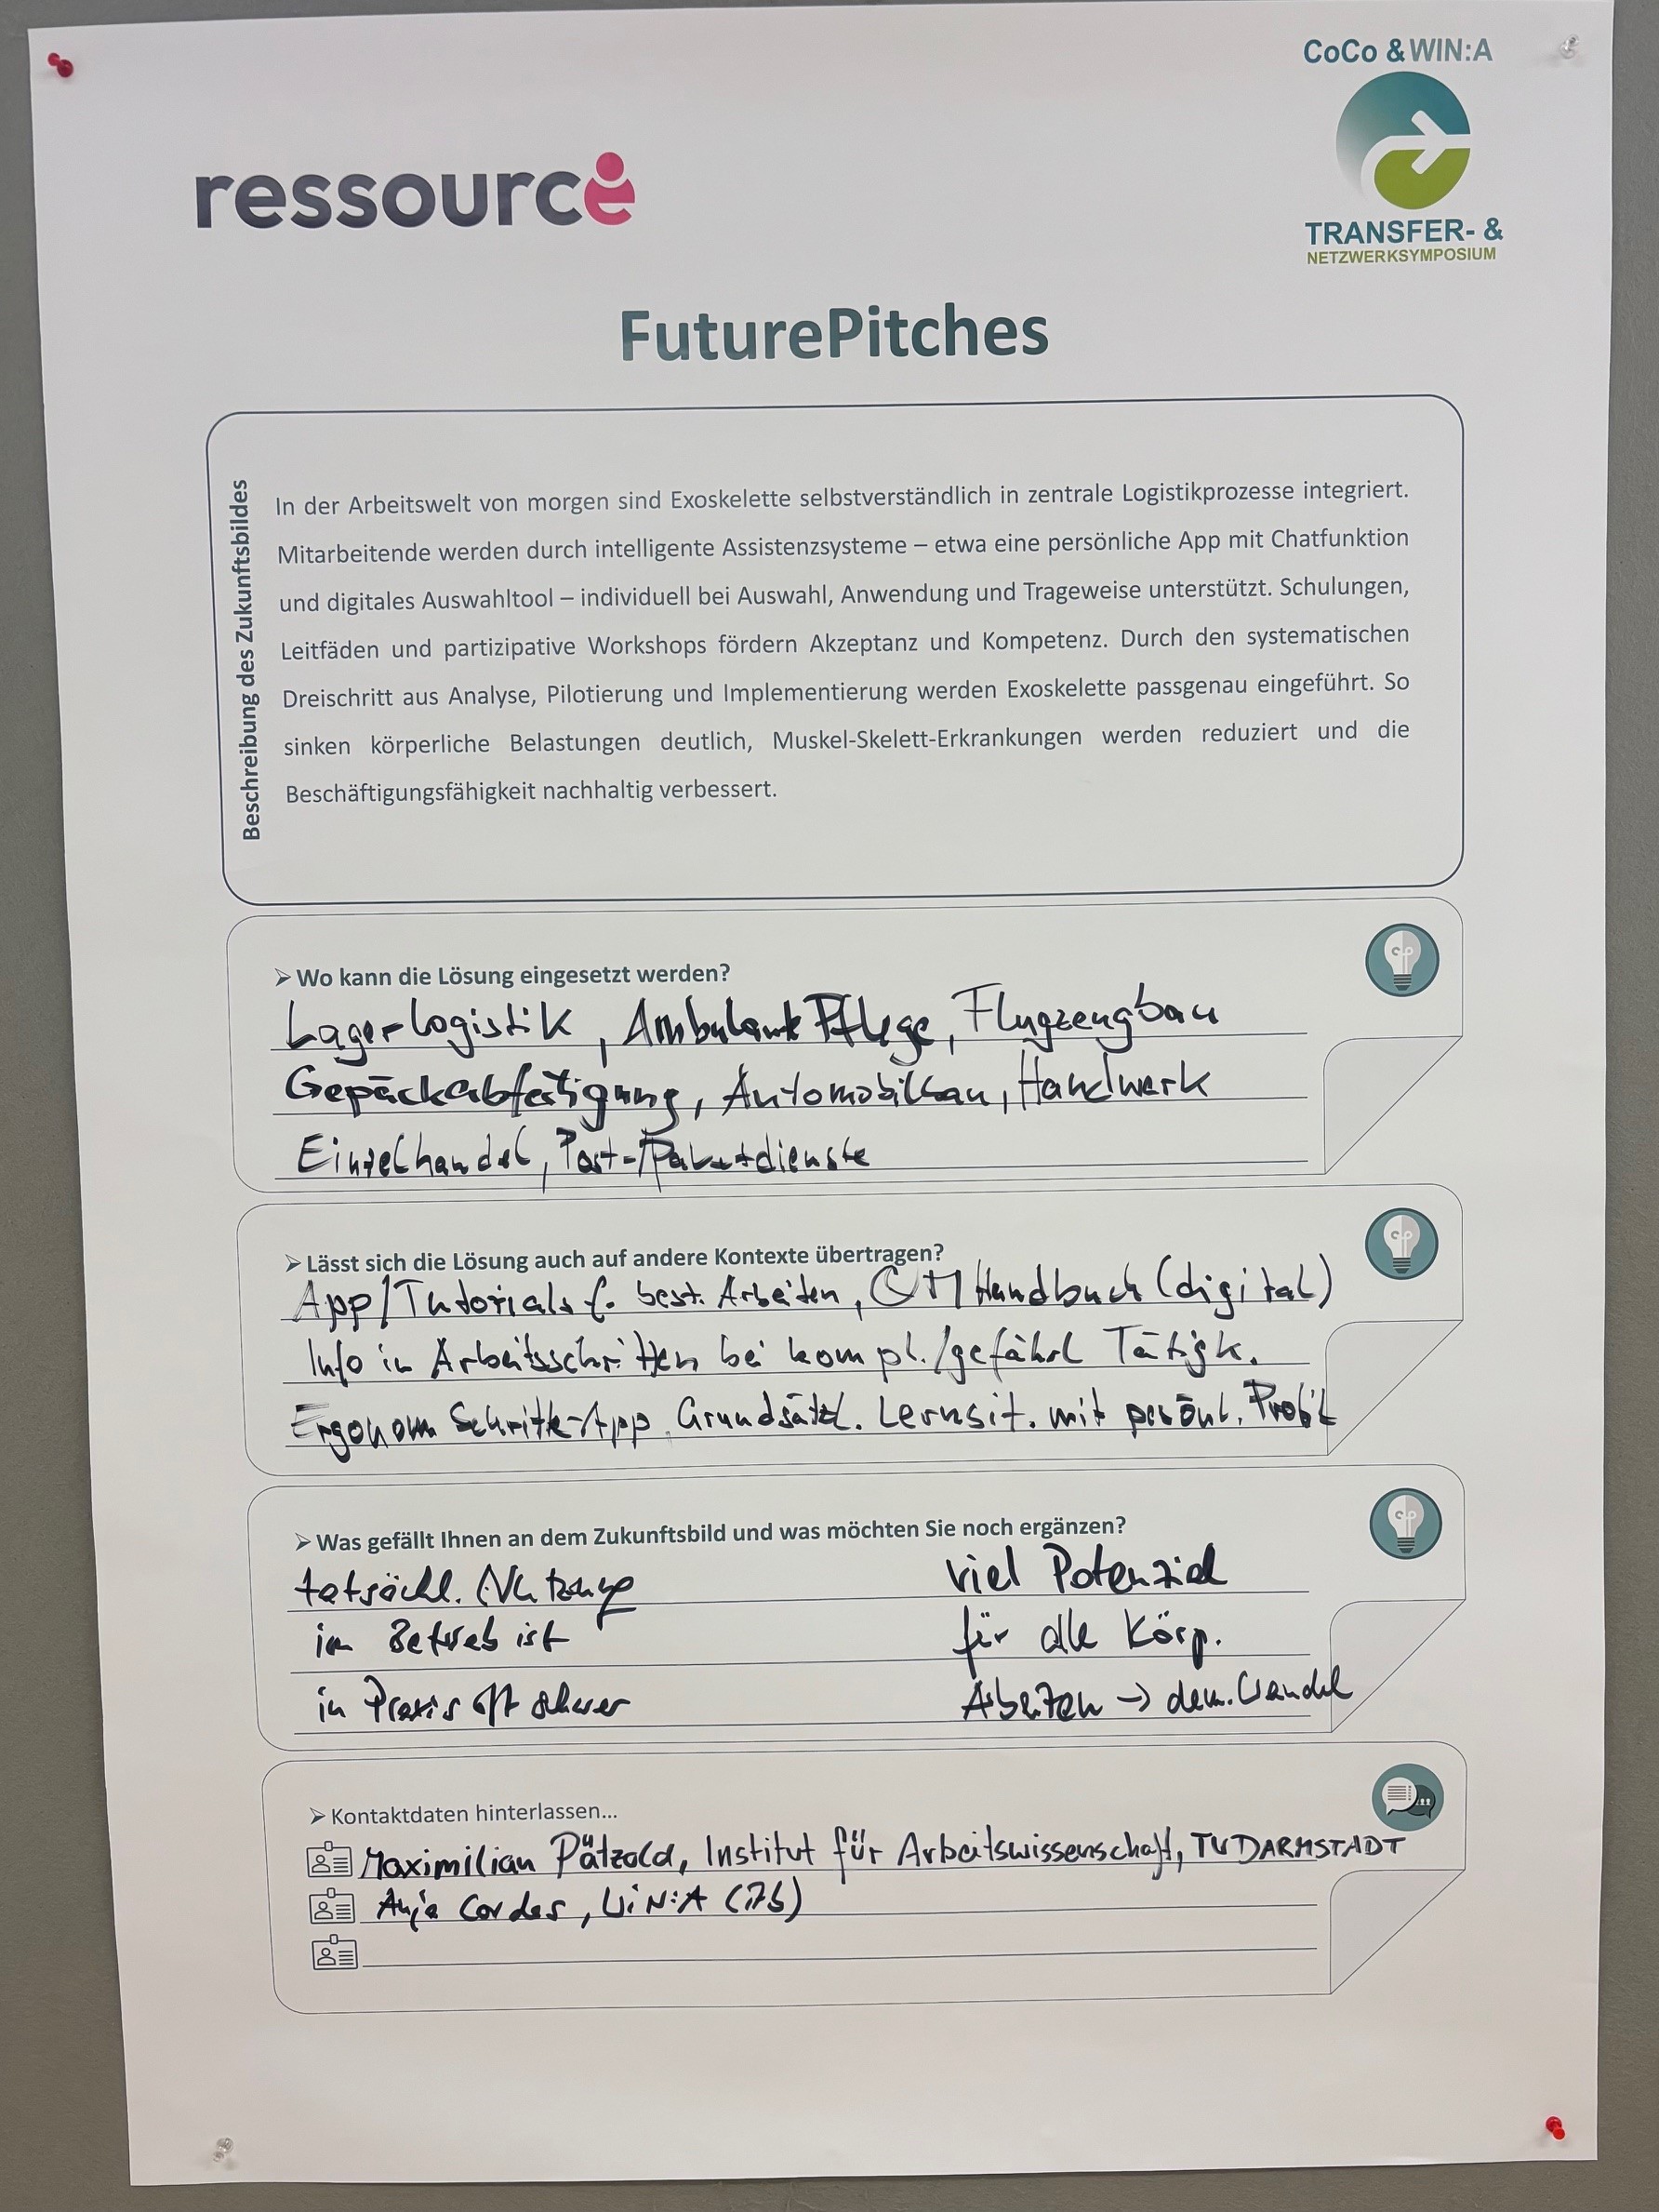 CoCo & WIN:A
ressource
TRANSFER- &
NETZWERKSYMPOSIUM
FuturePitches
Beschreibung des Zukunftsbildes
In der Arbeitswelt von morgen sind Exoskelette selbstverständlich in zentrale Logistikprozesse integriert.
Mitarbeitende werden durch intelligente Assistenzsysteme – etwa eine persönliche App mit Chatfunktion
und digitales Auswahltool – individuell bei Auswahl, Anwendung und Trageweise unterstützt. Schulungen,
Leitfäden und partizipative Workshops fördern Akzeptanz und Kompetenz. Durch den systematischen
Dreischritt aus Analyse, Pilotierung und Implementierung werden Exoskelette passgenau eingeführt. So
sinken körperliche Belastungen deutlich, Muskel-Skelett-Erkrankungen werden reduziert und die
Beschäftigungsfähigkeit nachhaltig verbessert.
➢ Wo kann die Lösung eingesetzt werden?
Lagerlogistik, Ambulante Pflege, Flugzeugbau
Gepäckabfertigung, Automobilbau, Handwerk
Einzelhandel, Post-/Paketdienste
➢ Lässt sich die Lösung auch auf andere Kontexte übertragen?
App/Tutorials f. best. Arbeiten, QM Handbuch (digital)
Info in Arbeitsschritten bei kompl./gefährl Tätigk.
Ergonom Schritte-App. Grundsätzl. Lernsit. mit persönl. Profil
➢ Was gefällt Ihnen an dem Zukunftsbild und was möchten Sie noch ergänzen?
tatsächl. Nutzung
im Betrieb ist
in Praxis oft schwer
viel Potenzial
für alle Körp.
Arbeiten -> dem. Wandel
➢ Kontaktdaten hinterlassen...
Maximilian Pätzold, Institut für Arbeitswissenschaft, TU DARMSTADT
Anja Cordes, WiN:A